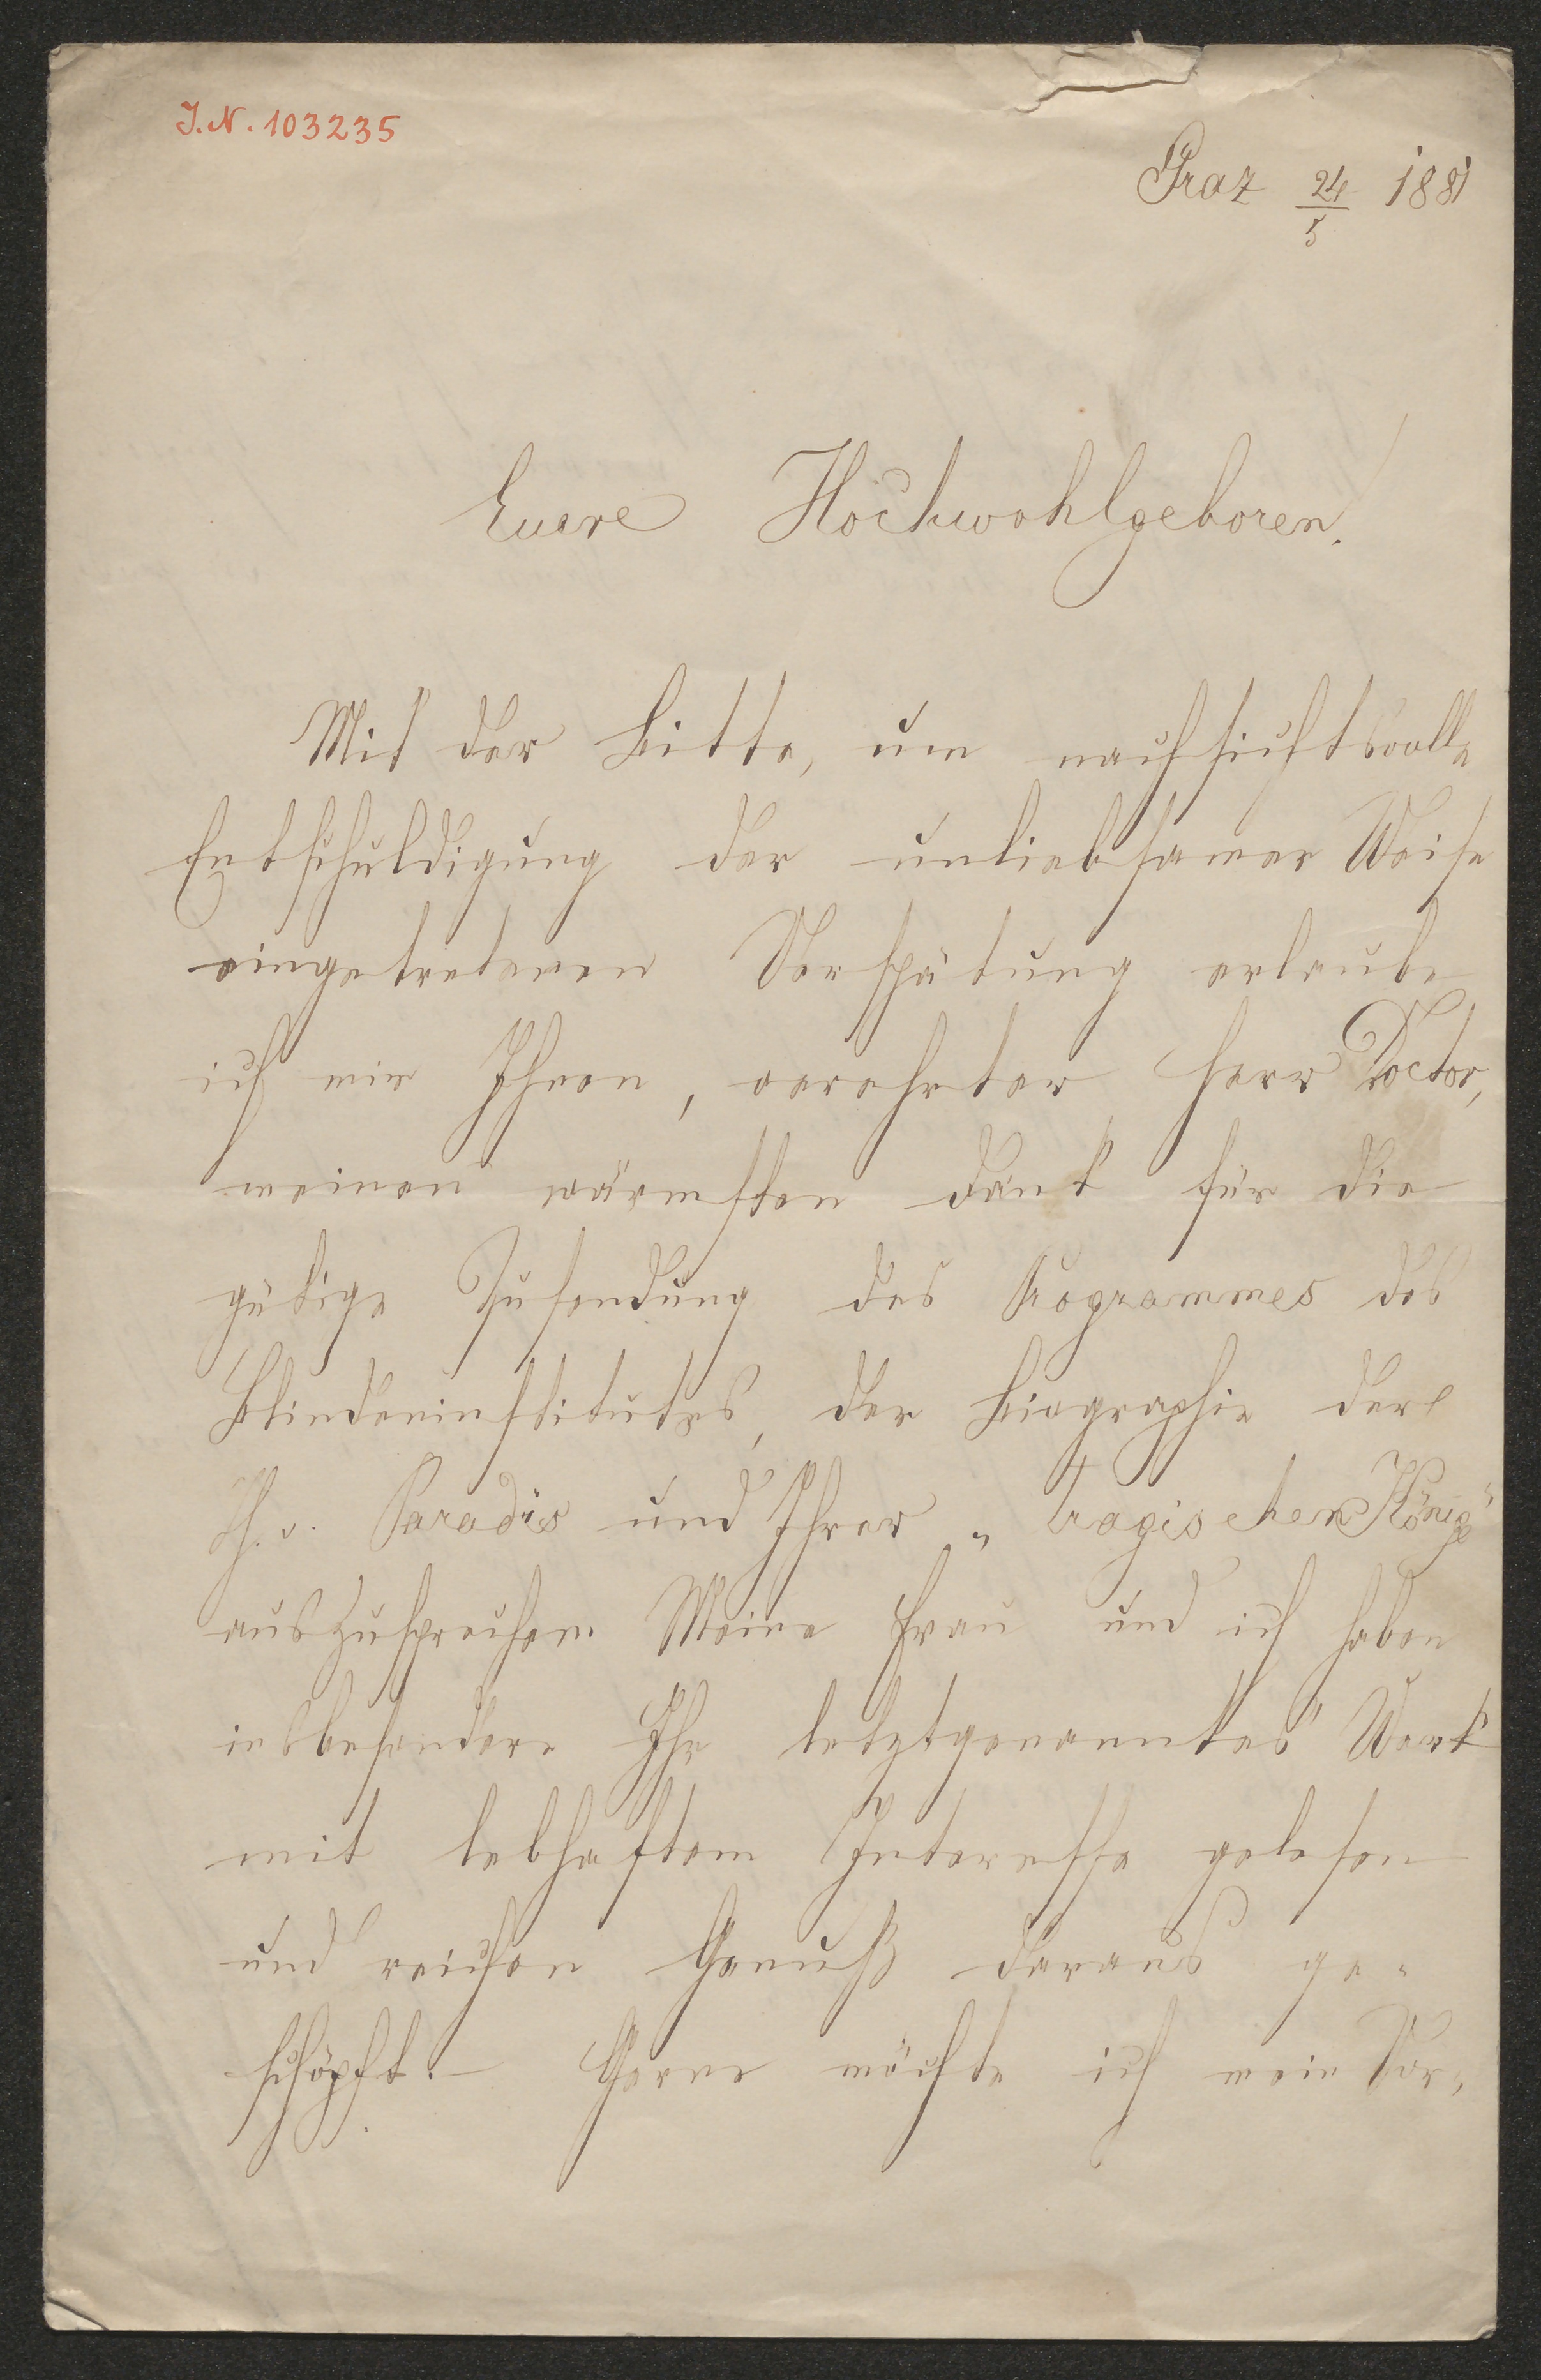 J.N. 103235
Graz 24/5 1881
Euere Hochwohlgeboren!
Mit der Bitte, um nachsichtsvolle
Entschuldigung der unliebsamer Weise
eingetretenen Verspätung erlaube
ich mir Ihnen, verehrter Herr Doctor,
meinen wärmsten Dank für die
gütige Zusendung des Programmes des
Blindeninstitutes, der Biographie der
Th. v. Paradis und Ihrer „tragischen Könige"
auszusprechen. Meine Frau und ich haben
insbesondere Ihr letztgenanntes Werk
mit lebhaftem Interesse gelesen
und reichen Genuß daraus ge-
schöpft. – Gerne möchte ich mein Vor-